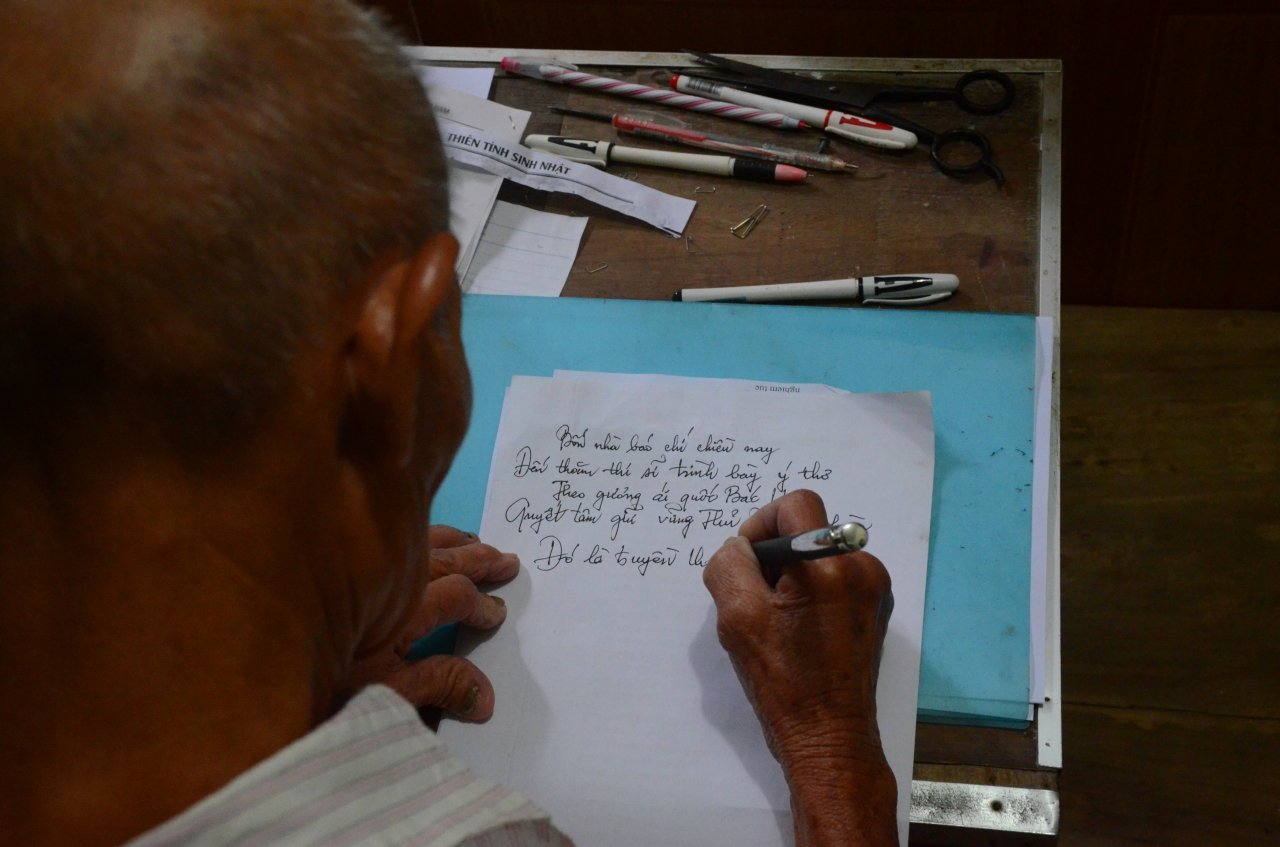 THIÊN TÍNH SINH NHẬT
nghiêm túc
Bốn nhà báo chí chiều nay
Đến thăm thi sĩ trình bày ý thơ
Theo gương ái quốc Bác
Quyết tâm giữ vững Thủ
Đó là truyền th